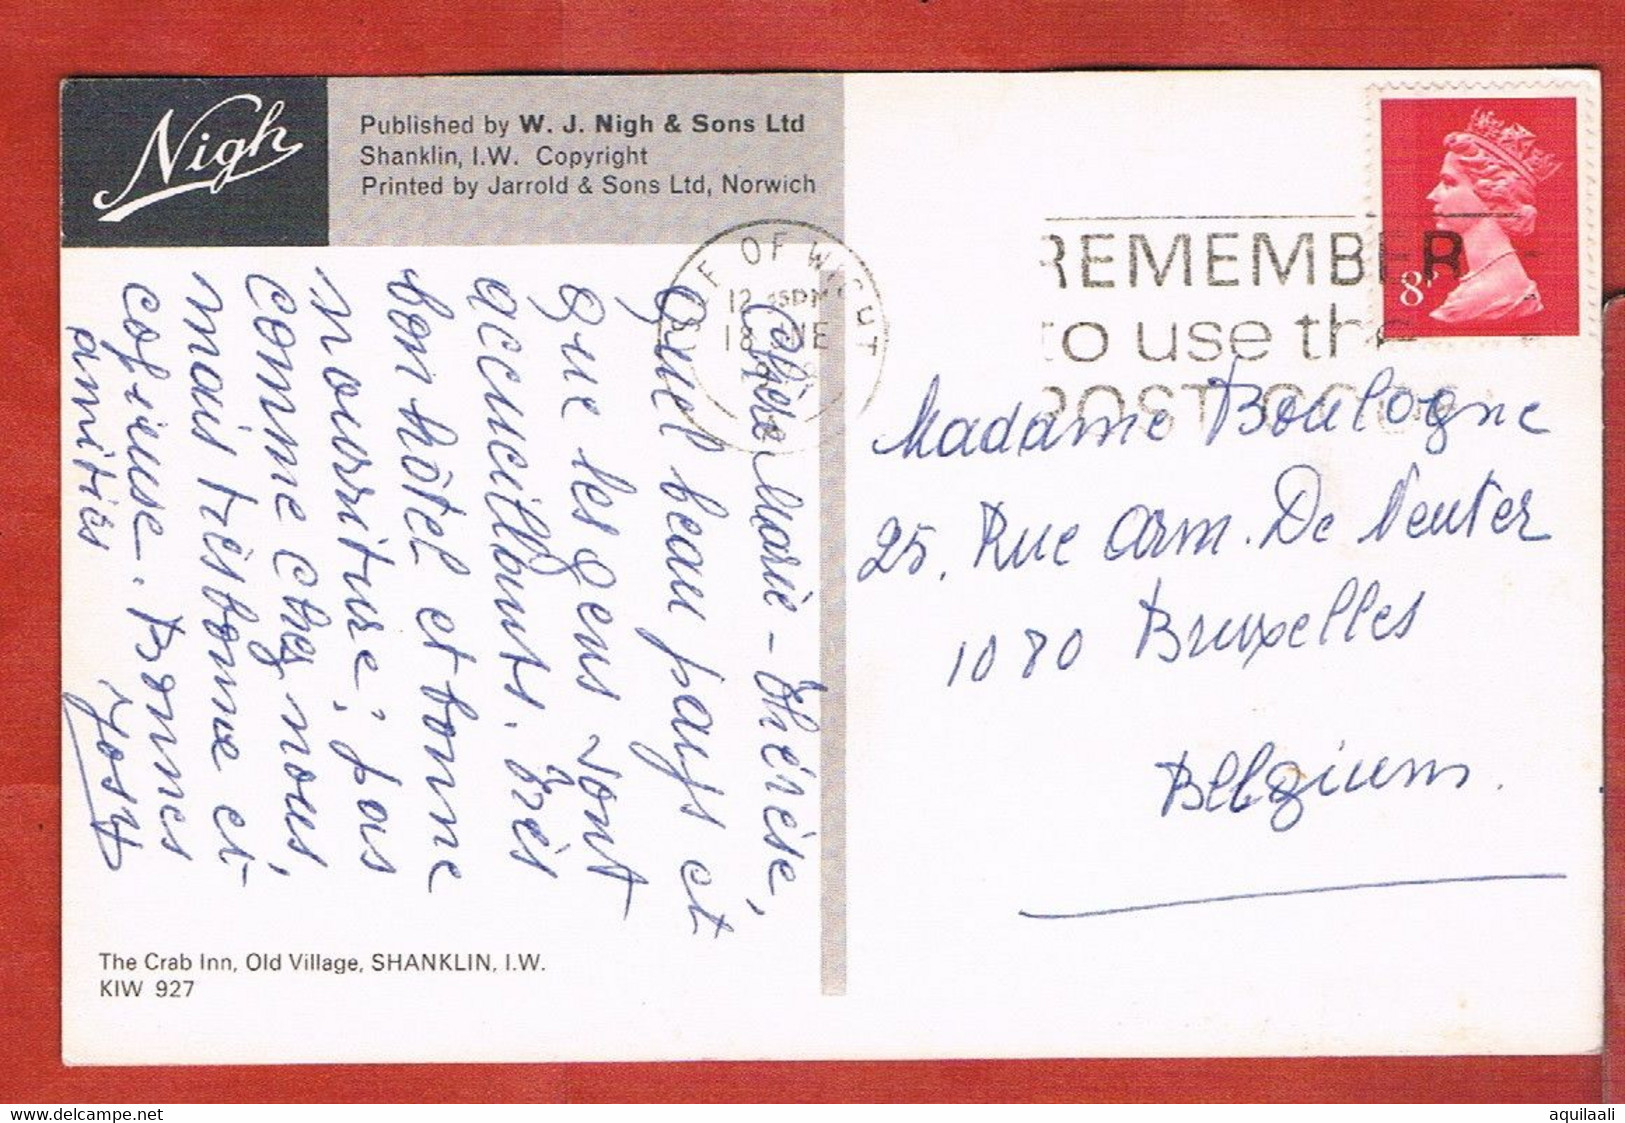 Nigh
Published by W. J. Nigh & Sons Ltd
Shanklin, I.W. Copyright
Printed by Jarrold & Sons Ltd, Norwich
OF
12
18
REMEMBER
to use the
POST CO
8P
Chère Marie-Thérèse,
Quel beau pays et
que les gens sont
accueillants. Très
bon hôtel et bonne
nourriture; pas
comme chez nous,
mais très bonne et
copieuse. Bonnes
amitiés Josy
Madame Boulogne
25, Rue Arm. De Neuter
1080 Bruxelles
Belgium.
The Crab Inn, Old Village, SHANKLIN, I.W.
KIW 927
www.delcampe.net
aquilaali